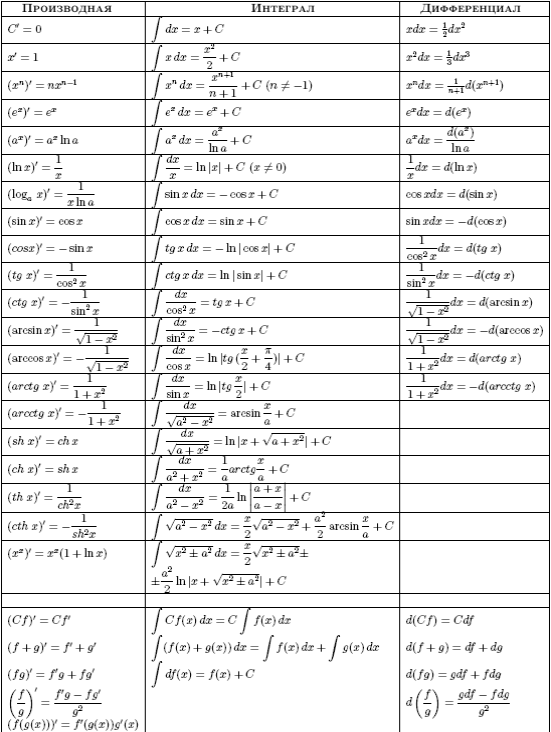 Производная Интеграл Дифференциал
C′ = 0 ∫ dx = x + C xdx = ½dx²
x′ = 1 ∫ x dx = x²/2 + C x²dx = ⅓dx³
(xⁿ)′ = nxⁿ⁻¹ ∫ xⁿ dx = xⁿ⁺¹/(n + 1) + C (n ≠ −1) xⁿdx = 1/(n+1) d(xⁿ⁺¹)
(eˣ)′ = eˣ ∫ eˣ dx = eˣ + C eˣdx = d(eˣ)
(aˣ)′ = aˣ ln a ∫ aˣ dx = aˣ/ln a + C aˣdx = d(aˣ)/ln a
(ln x)′ = 1/x ∫ dx/x = ln |x| + C (x ≠ 0) 1/x dx = d(ln x)
(logₐ x)′ = 1/(x ln a) ∫ sin x dx = − cos x + C cos xdx = d(sin x)
(sin x)′ = cos x ∫ cos x dx = sin x + C sin xdx = −d(cos x)
(cosx)′ = − sin x ∫ tg x dx = − ln | cos x| + C 1/cos² x dx = d(tg x)
(tg x)′ = 1/cos² x ∫ ctg x dx = ln | sin x| + C 1/sin² x dx = −d(ctg x)
(ctg x)′ = −1/sin² x ∫ dx/cos² x = tg x + C 1/√(1 − x²) dx = d(arcsin x)
(arcsin x)′ = 1/√(1 − x²) ∫ dx/sin² x = −ctg x + C 1/√(1 − x²) dx = −d(arccos x)
(arccos x)′ = −1/√(1 − x²) ∫ dx/cos x = ln |tg (x/2 + π/4)| + C 1/(1 + x²) dx = d(arctg x)
(arctg x)′ = 1/(1 + x²) ∫ dx/sin x = ln |tg x/2| + C 1/(1 + x²) dx = −d(arcctg x)
(arcctg x)′ = −1/(1 + x²) ∫ dx/√(a² − x²) = arcsin x/a + C
(sh x)′ = ch x ∫ dx/√(a + x²) = ln |x + √(a + x²)| + C
(ch x)′ = sh x ∫ dx/(a² + x²) = 1/a arctg x/a + C
(th x)′ = 1/ch²x ∫ dx/(a² − x²) = 1/2a ln |(a + x)/(a − x)| + C
(cth x)′ = −1/sh²x ∫ √(a² − x²) dx = x/2 √(a² − x²) + a²/2 arcsin x/a + C
(xˣ)′ = xˣ(1 + ln x) ∫ √(x² ± a²) dx = x/2 √(x² ± a²)±
±a²/2 ln |x + √(x² ± a²)| + C
(Cf)′ = Cf′ ∫ Cf(x) dx = C ∫ f(x) dx d(Cf) = Cdf
(f + g)′ = f′ + g′ ∫(f(x) + g(x)) dx = ∫ f(x) dx + ∫ g(x) dx d(f + g) = df + dg
(fg)′ = f′g + fg′ ∫ df(x) = f(x) + C d(fg) = gdf + fdg
(f/g)′ = (f′g − fg′)/g² d(f/g) = (gdf − fdg)/g²
(f(g(x)))′ = f′(g(x))g′(x)